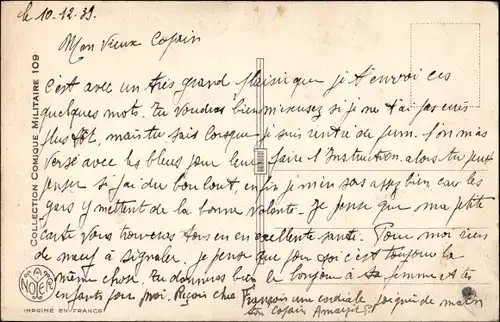 le 10.12.39.
Mon Vieux Copain
C'est avec un très grand plaisir que je t'envoi ces
quelques mots. tu voudras bien m'excusez si je ne t'ai pas écris
plus tôt, mais tu sais lorsque je suis rentré de perm. l'on m'as
versé avec les bleus pour leur faire l'Instruction. alors tu peux
penser si j'ai du boulout, enfin je m'en sors assez bien, car les
gars y mettent de la bonne volonté. Je pense que ma petite
carte vous trouveras tous en excellente santé. Pour moi rien
de neuf à signaler. je pense que pour toi c'est toujours la
même chose, tu donneras bien le bonjour à ta femme et tes
enfants pour moi. Reçois cher François une cordiale poignée de main
Ton Copain
COLLECTION COMIQUE MILITAIRE 109
NOYER
IMPRIMÉ EN FRANCE